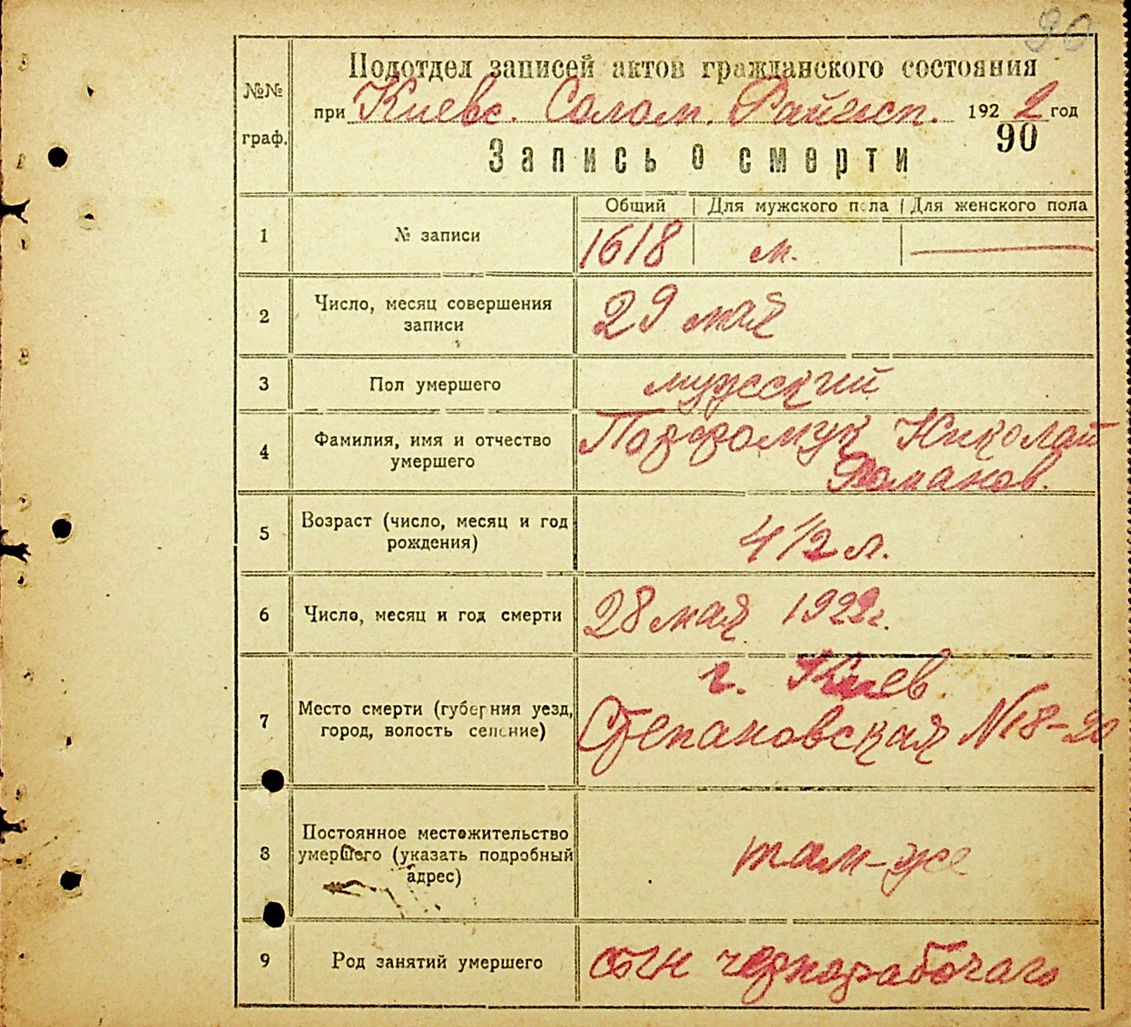 90
№№ граф.
Подотдел записей актов гражданского состояния
при Киевс. Солом. Райисп. 1922 год
90
Запись о смерти
Общий | Для мужского пола | Для женского пола
1 № записи 1618 м. —
2 Число, месяц совершения
записи
29 мая
3 Пол умершего мужский
4 Фамилия, имя и отчество
умершего
Николай
Романов.
5 Возраст (число, месяц и год
рождения)
4 1/2 л.
6 Число, месяц и год смерти 28 мая 1922 г.
7 Место смерти (губерния уезд,
город, волость селение)
г. Киев.
Степановская № 18-20
8 Постоянное местожительство
умершего (указать подробный
адрес)
там-же
9 Род занятий умершего сын чернорабочаго